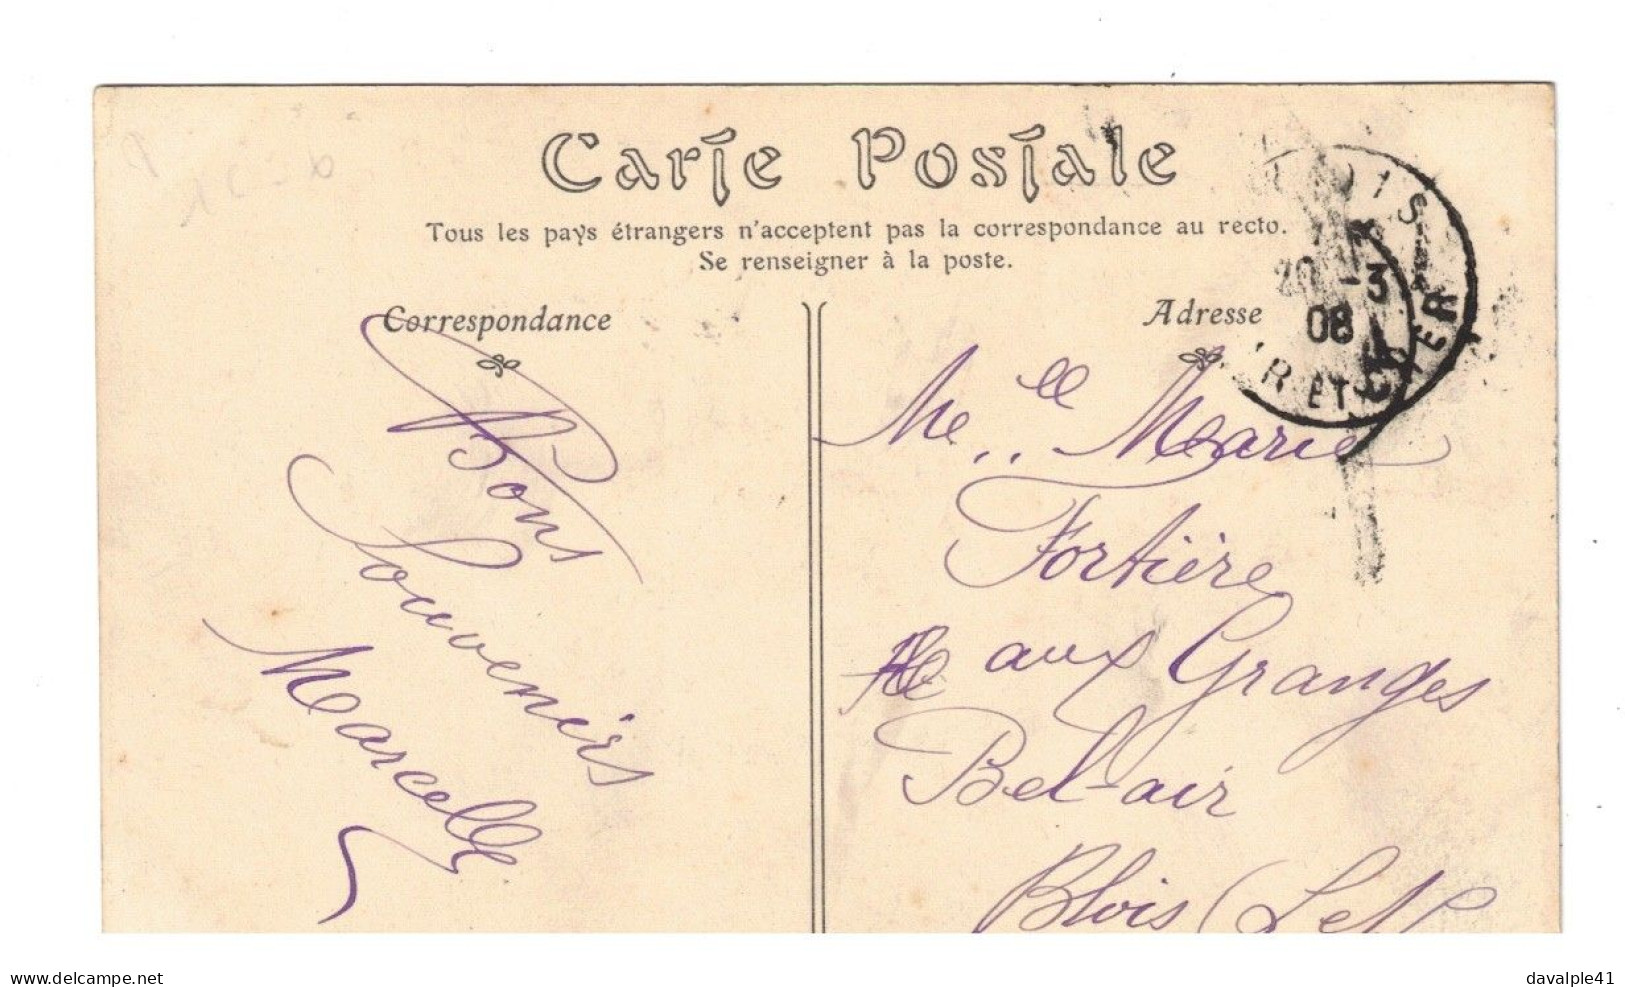 Carte Postale
Tous les pays étrangers n'acceptent pas la correspondance au recto.
Se renseigner à la poste.
Correspondance
Bons
Souvenirs
Marcelle
Adresse
Melle Marie
Fortière
aux Granges
Bel-air
Blois (L et
OIS
20 -3
08
R ET CHER
www.delcampe.net
davalple41